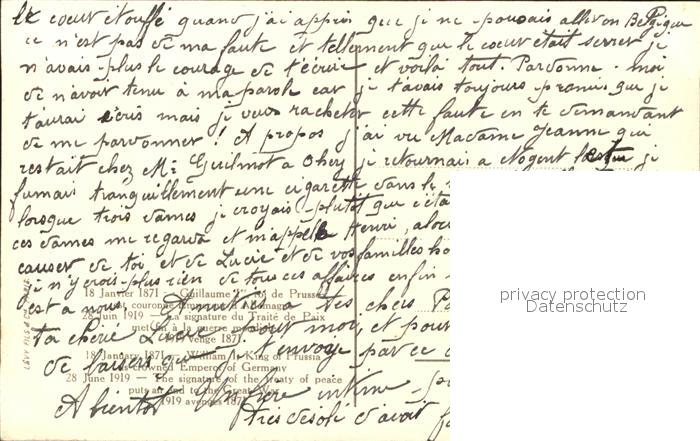 le coeur étouffé quand j'ai appris que je ne pouvais aller en Belgique
ce n'est pas de ma faute et tellement que le coeur était serrer je
n'avais plus le courage de t'écrire et voilà tout. Pardonne-moi
de n'avoir tenu à ma parole car je t'avais toujours promis que je
t'aurai écris mais je veux racheter cette faute en te demandant
de me pardonner! A propos j'ai vu Madame Jeanne qui
restait chez Mr Guilmot a Ohey je retournais a Nogent lorsque je
fumais tranquillement une cigarette dans le
lorsque trois dames je croyais plutôt que c'éta
ces dames me regarda et m'appela Henri, alor
causer de toi et de Lucie et de vos familles
je n'y crois plus rien de tous ces affaires enfin
18 Janvier 1871 — Guillaume Ier roi de Prusse
est couronné Empereur d'Allemagne
est a nous. Amitiés a tes chers
28 Juin 1919 — La signature du Traité de Paix
met fin à la guerre mondiale
ta chérie Lucie pour moi, et pour
1919 venge 1871
18 January 1871 — William I. King of Prussia
de baisers que j'envoye par ce
was crowned Emperor of Germany
28 June 1919 — The signature of the treaty of peace
puts an end to the Great War
1919 avenges 1871
A bientôt
très désolé d'avoir
privacy protection
Datenschutz